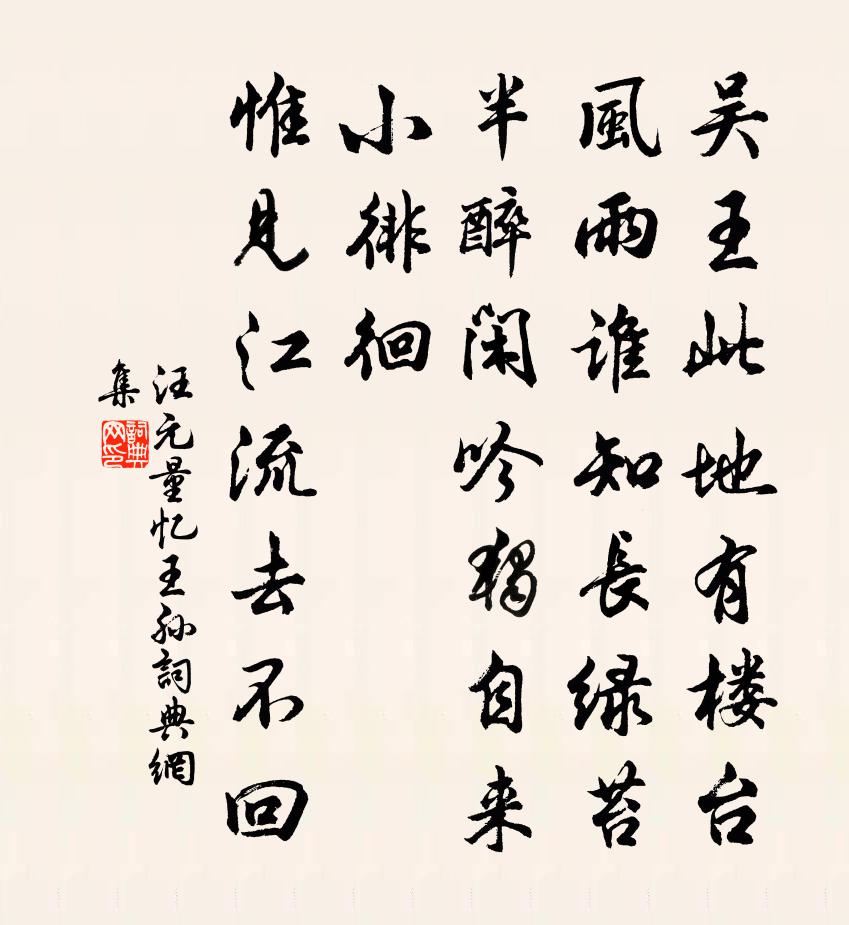 吴王此地有楼台
風雨谁知長绿苔
半醉闲吟独自来
小徘徊
惟見江流去不回
汪元量忆王孙詞典網
集
詞典
网印